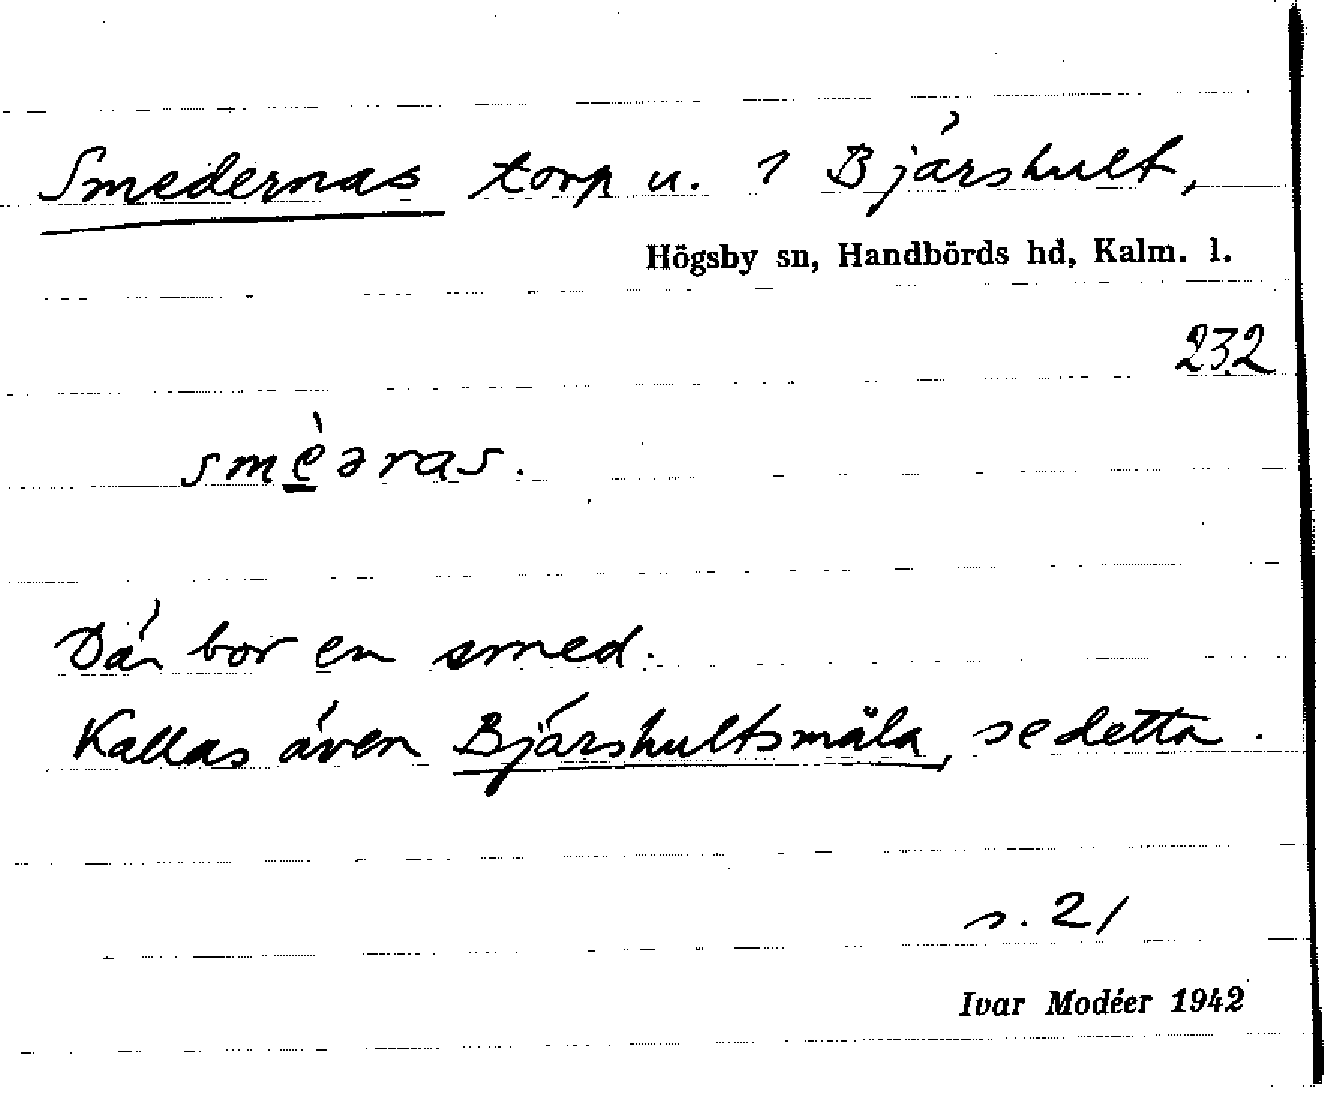 Smedernas torp u. 1 Bjärshult,
Högsby sn, Handbörds hd, Kalm. l.
232
smèəras.
Där bor en smed.
Kallas även Bjärshultsmåla, se detta.
s. 21
Ivar Modéer 1942